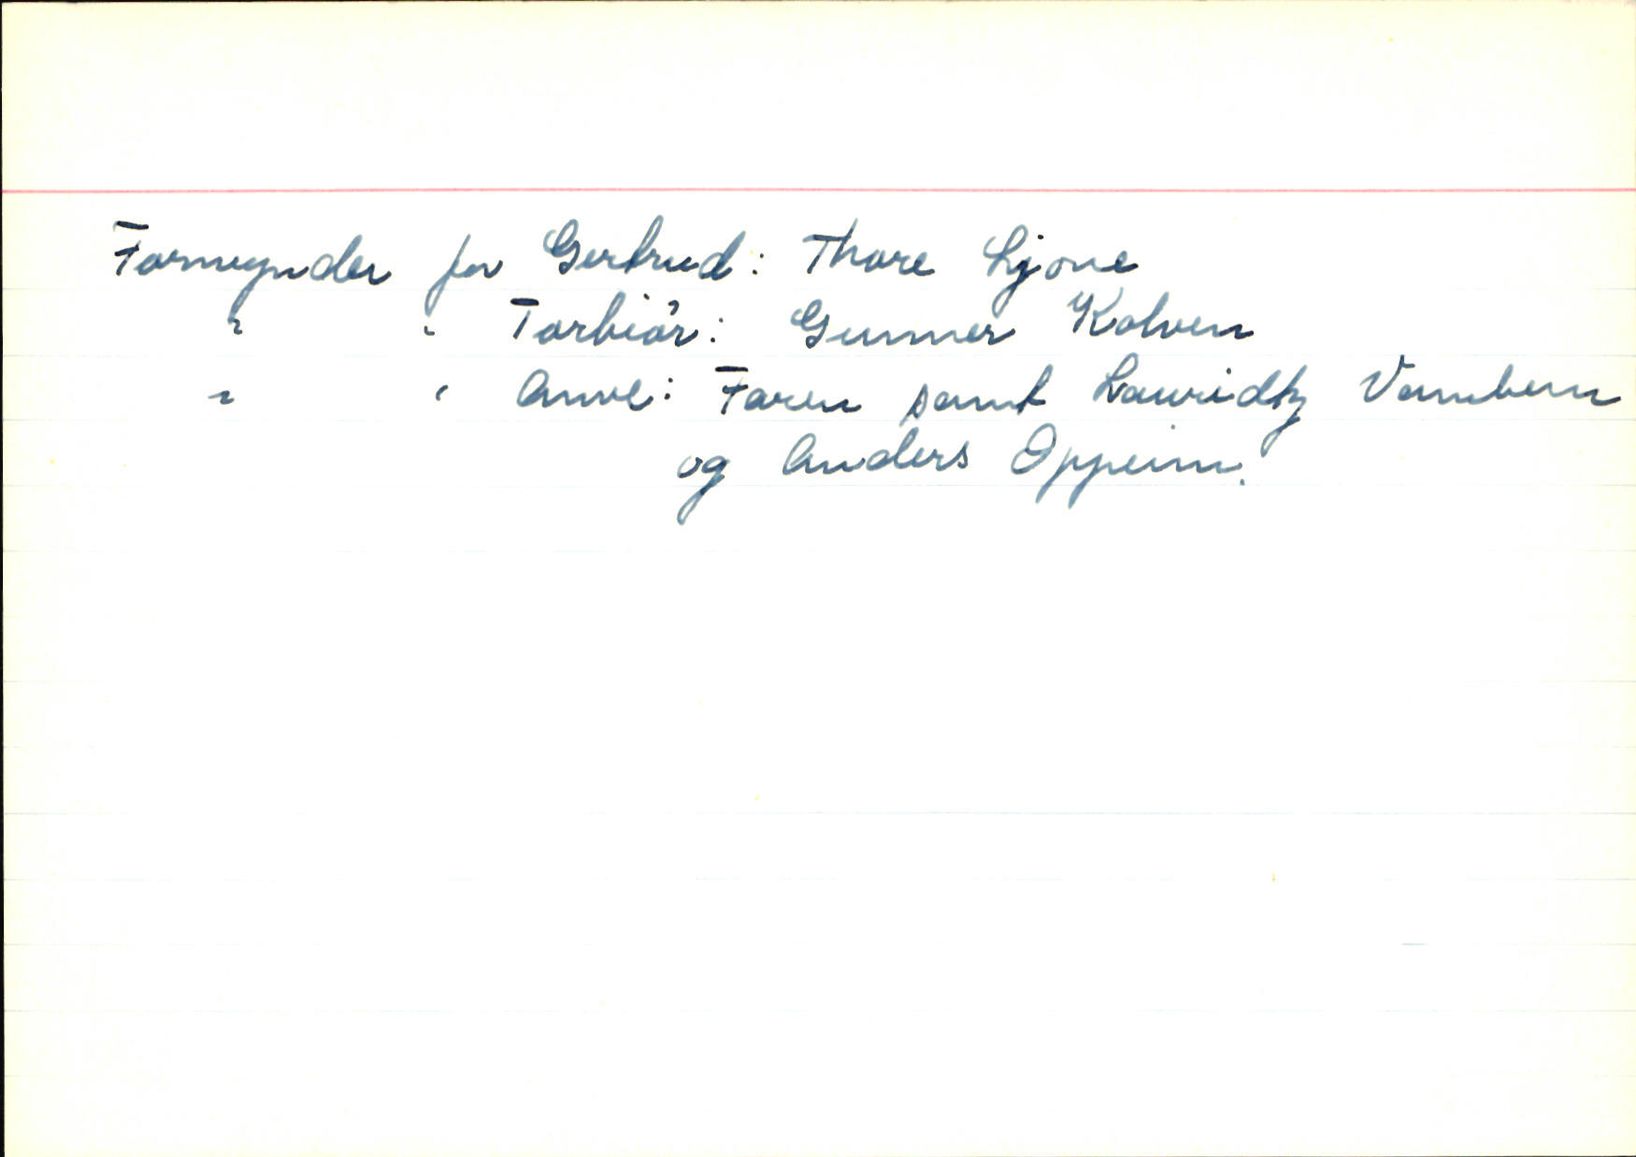 Formynder for Gertrud: Thore Ljone
" " Torbiör: Gunner Kolven
" " Anve: Faren samt Lauridtz Vambem
og Anders Oppeim.